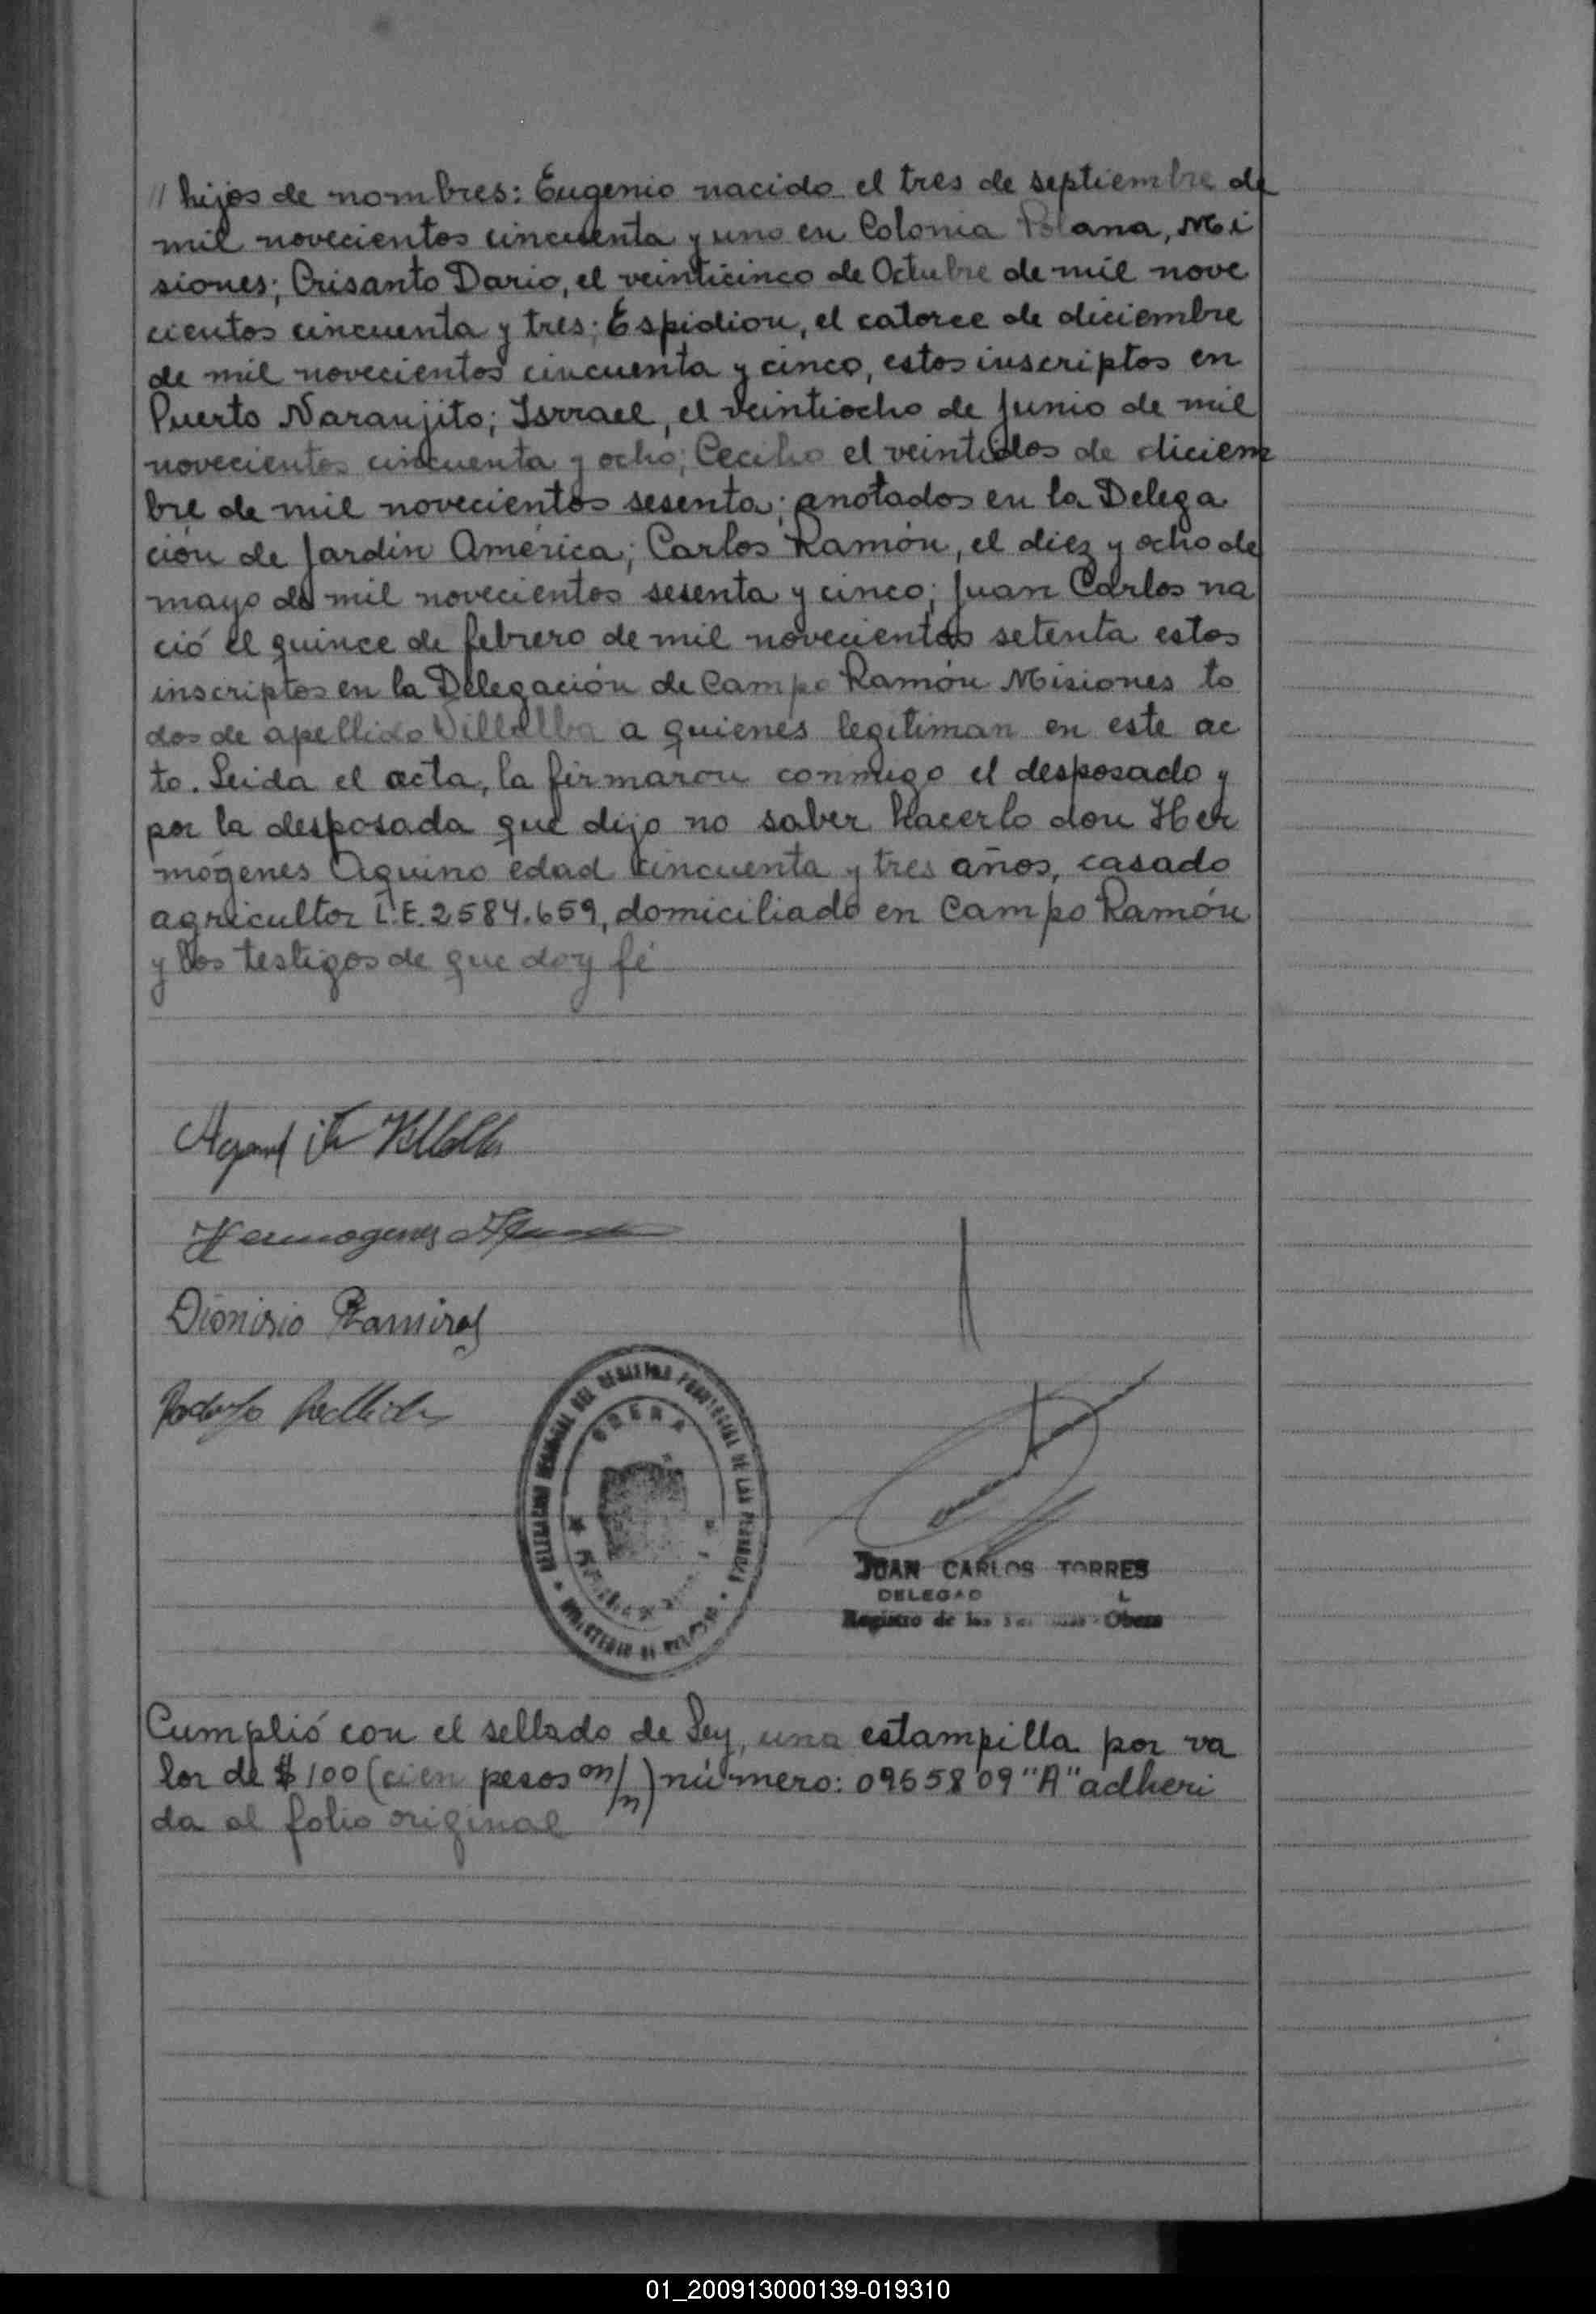 // hijos de nombres: Eugenio nacido el tres de septiembre de
mil novecientos cincuenta y uno en Colonia Polana, Mi
siones; Crisanto Dario, el veinticinco de Octubre de mil nove
cientos cincuenta y tres; Espidion, el catorce de diciembre
de mil novecientos cincuenta y cinco, estos inscriptos en
Puerto Naranjito; Isrrael, el veintiocho de Junio de mil
novecientos cincuenta y ocho; Cecilio el veintidos de diciem
bre de mil novecientos sesenta; anotados en la Delega
ción de Jardín América; Carlos Ramón, el diez y ocho de
mayo de mil novecientos sesenta y cinco; Juan Carlos na
ció el quince de febrero de mil novecientos setenta estos
inscriptos en la Delegación de Campo Ramón Misiones to
dos de apellido Villalba a quienes legitiman en este ac
to. Leida el acta, la firmaron conmigo el desposado y
por la desposada que dijo no saber hacerlo don Her
mógenes Aquino edad cincuenta y tres años, casado
agricultor L.E. 2584.659, domiciliado en Campo Ramón
y los testigos de que doy fé
Villalba
Hermogenes Aquino
Dionisio Ramirez
Rodolfo
OBERA
JUAN CARLOS TORRES
Registro de las Obera
Cumplió con el sellado de Ley, una estampilla por va
lor de $100 (cien pesos m/n) número: 0965809 "A" adheri
da al folio original
01_200913000139-019310